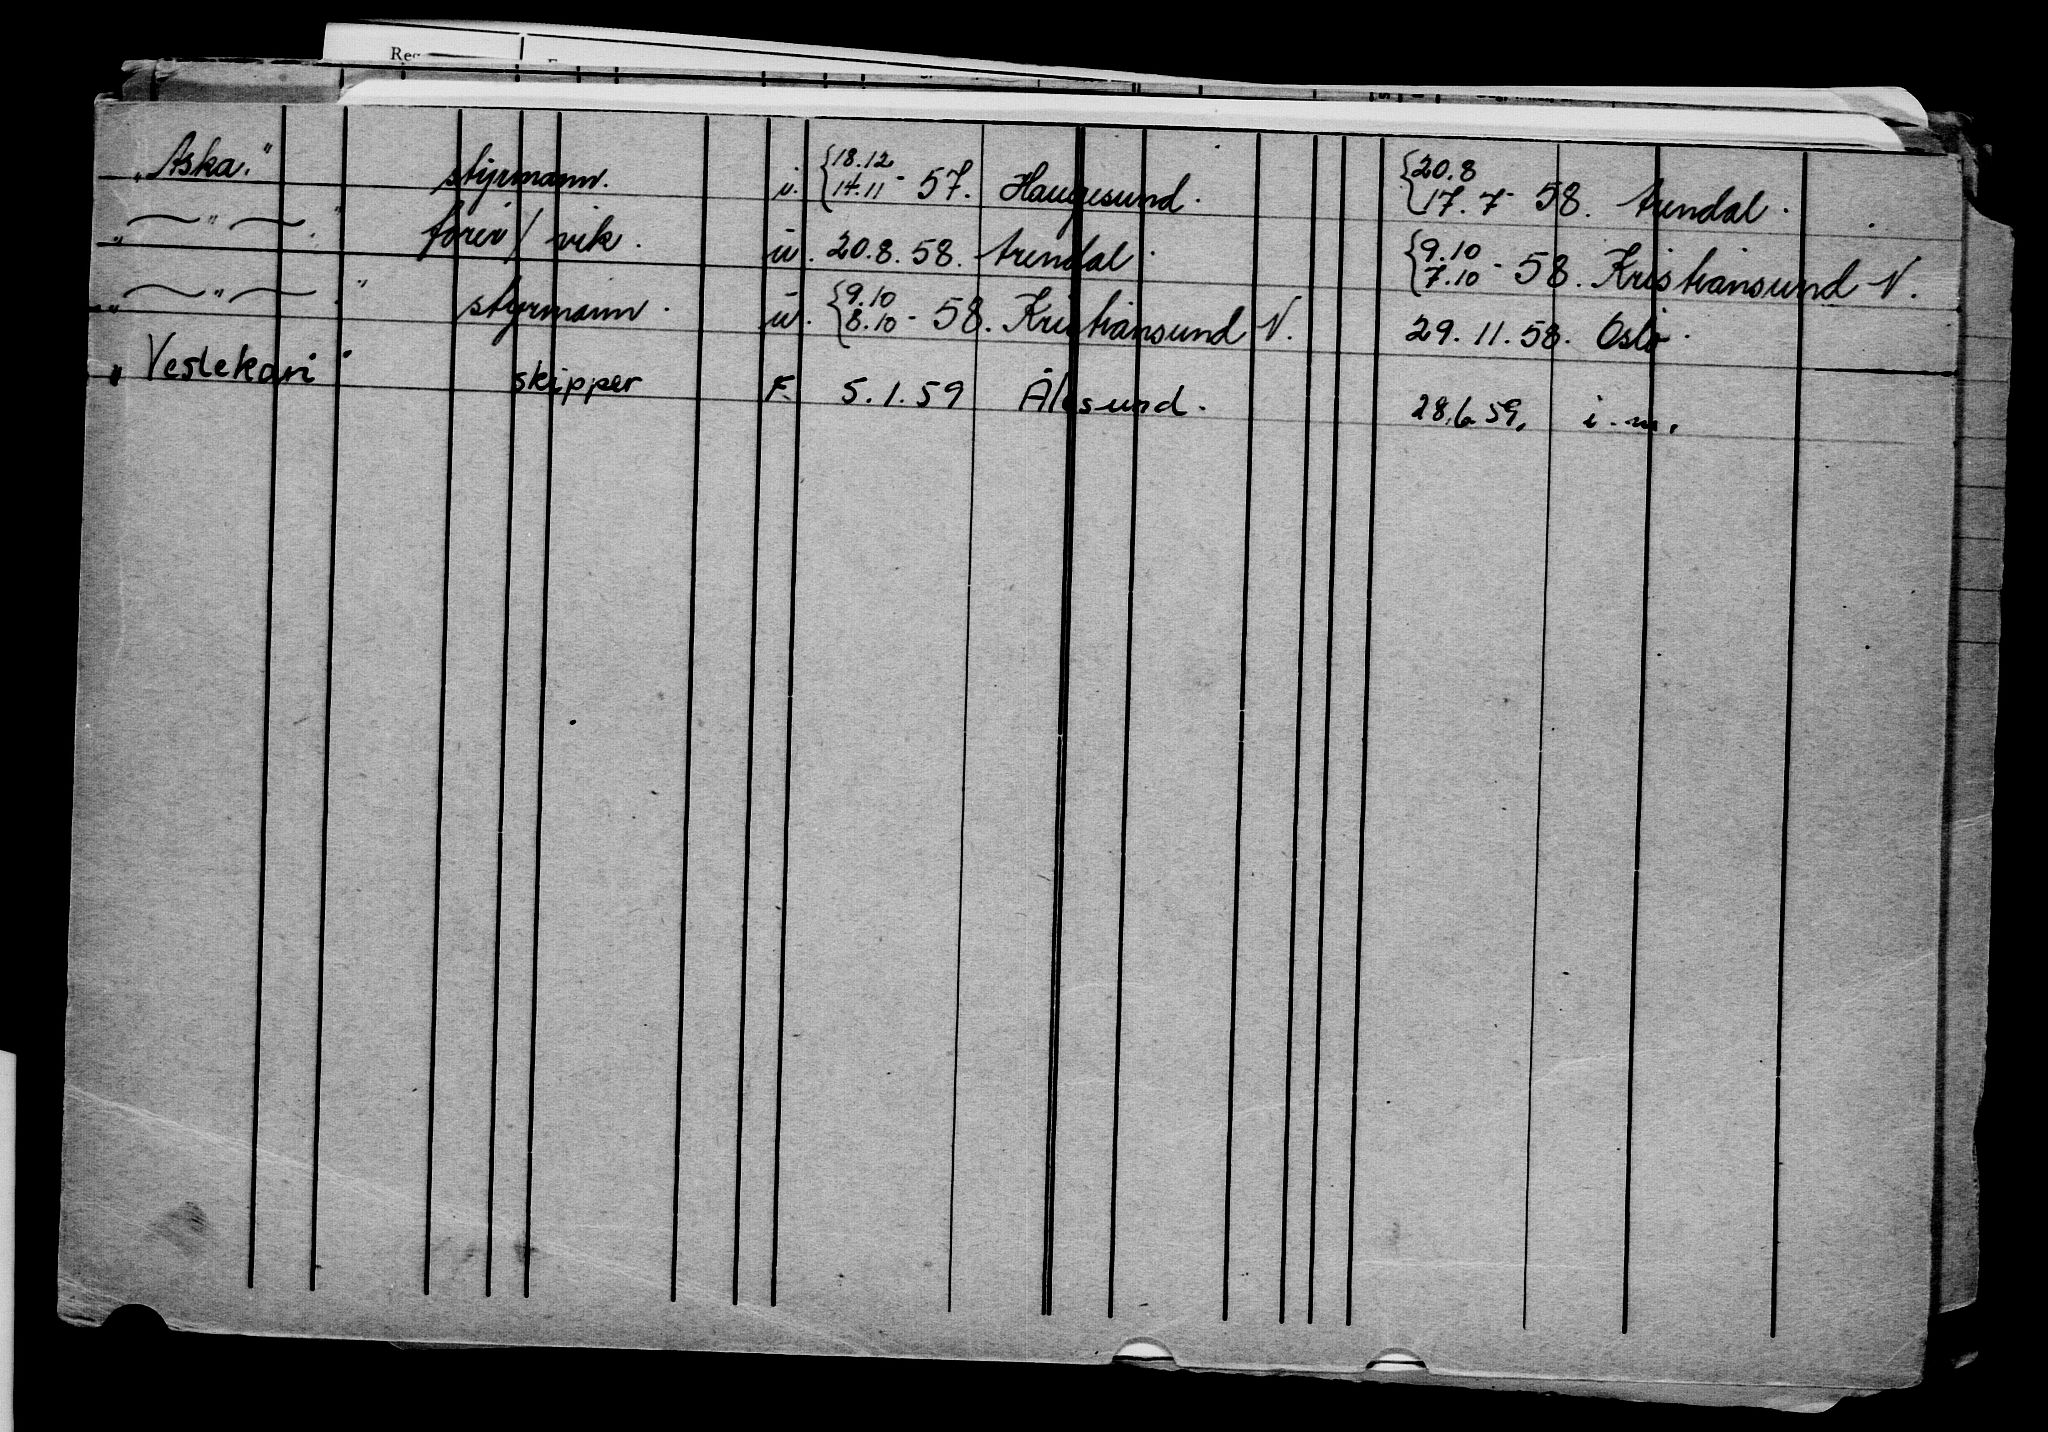 Reg
"Aska." styrmann. u. {18.12 14.11 - 57. Haugesund. {20.8 17.7 - 58. Arendal.
" — " — . " fører / vik. u. 20.8.58. Arendal. {9.10 7.10 - 58. Kristiansund N.
" — " — . " styrmann. u. {9.10 8.10 - 58. Kristiansund N. 29.11.58. Oslo.
" Veslekari " skipper F. 5.1.59 Ålesund. 28.6.59. i.m.